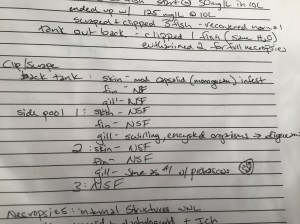 start @ 50mg/L in 10L
ended up w/ 125 mg/L @ 10L
scraped + clipped 3 fish - recovered normal
tank out back - clipped 1 fish (same H2O)
euthanized 2 for full necropsies
Clip/Scrape
back tank : skin - mod capsalid (monogenean) infest
fin - NF
gill - NF
side pool 1 : skin - NSF
fin - NSF
gill - swelling, encysted organisms →
2 : skin - NSF
fin - NSF
gill - same as #1 w/
3 : NSF
Necropsies : internal structures WNL
+ Ich